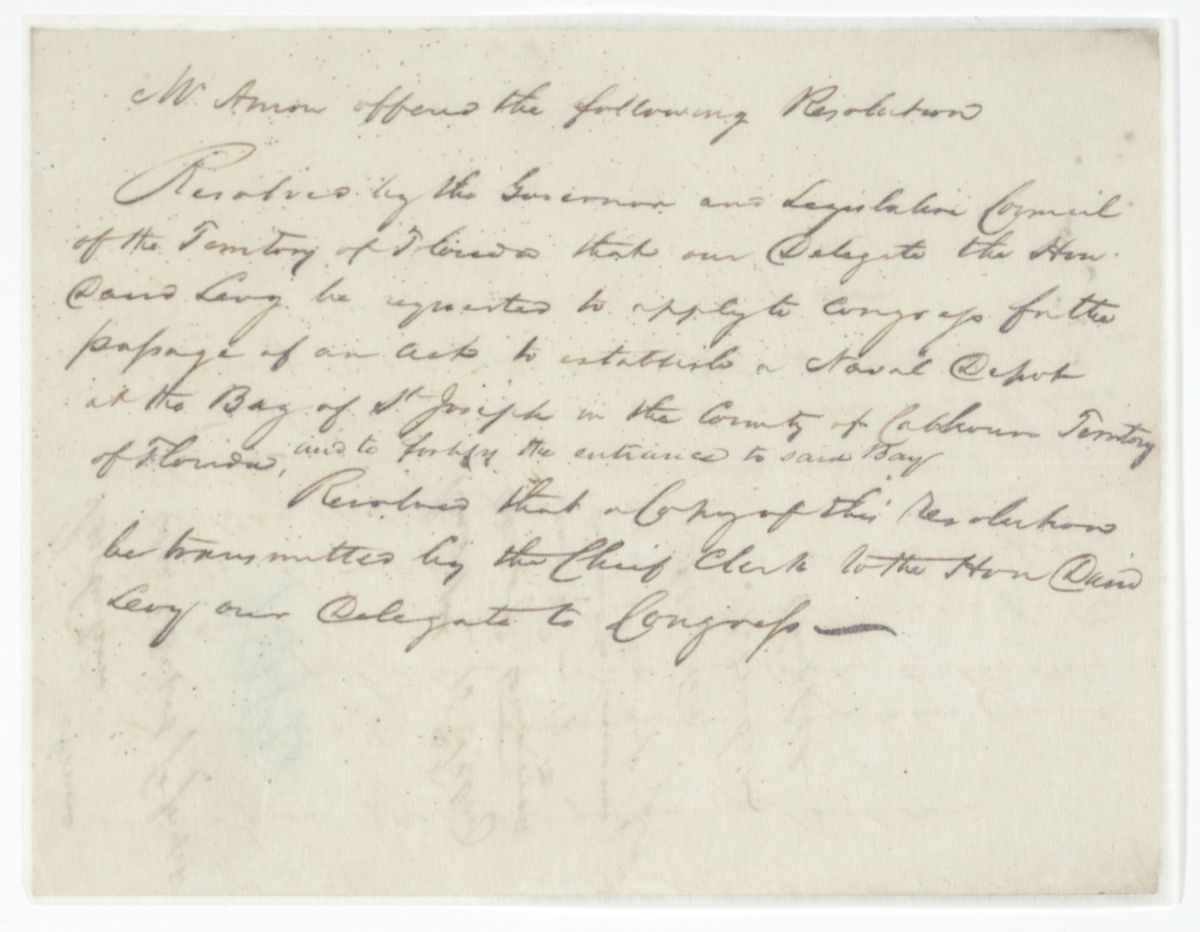 Mr. offered the following Resolution
Resolved by the Governor and Legislative Council
of the Territory of Florida that our Delegate the Hon.
David Levy be requested to apply to Congress for the
passage of an act to establish a Naval Depot
at the Bay of St Joseph in the County of Calhoun Territory
of Florida, and to fortify the entrance to said Bay
Resolved that a Copy of this resolution
be transmitted by the Chief Clerk to the Hon David
Levy our Delegate to Congress —